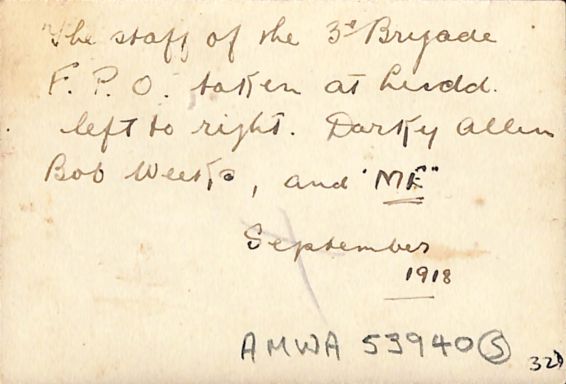 The staff of the 3rd Brigade
F. P. O. taken at Ludd.
left to right. Darky Allen
Bob Weeks, and "ME"
September
1918
AMWA 53940 (S)
32)